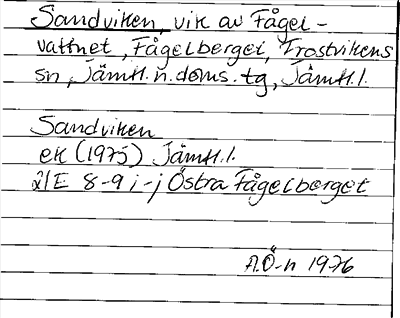 Sandviken, vik av Fågel-
vattnet, Fågelberget, Frostvikens
sn, Jämtl. n. doms. tg, Jämtl. l.
Sandviken
ek (1975) Jämtl. l.
21E 8-9 i-j Östra Fågelberget
A.Ö-n 1976